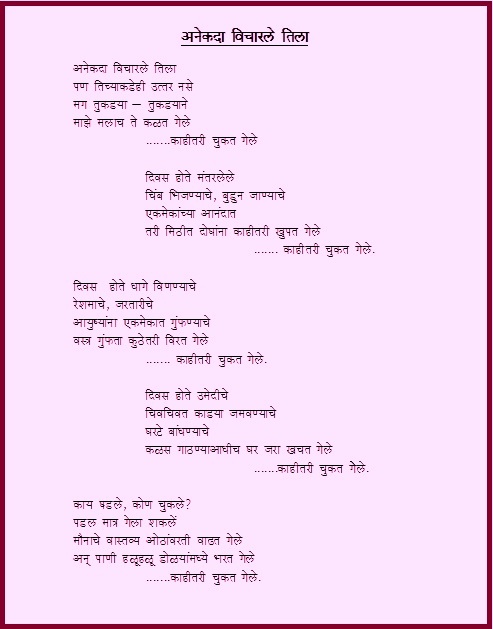 अनेकदा विचारले तिला
अनेकदा विचारले तिला
पण तिच्याकडेही उत्तर नसे
मग तुकडया – तुकडयाने
माझे मलाच ते कळत गेले
.......काहीतरी चुकत गेले
दिवस होते मंतरलेले
चिंब भिजण्याचे, बुडुन जाण्याचे
एकमेकांच्या आनंदात
तरी मिठीत दोघांना काहीतरी खुपत गेले
....... काहीतरी चुकत गेले.
दिवस होते धागे विणण्याचे
रेशमाचे, जरतारीचे
आयुष्यांना एकमेकात गुंफण्याचे
वस्त्र गुंफता कुठेतरी विरत गेले
....... काहीतरी चुकत गेले.
दिवस होते उमेदीचे
चिवचिवत काडया जमवण्याचे
घरटे बांधण्याचे
कळस गाठण्याआधीच घर जरा खचत गेले
.......काहीतरी चुकत गेले.
काय घडले, कोण चुकले?
पडल मात्र गेला शकलें
मौनाचे वास्तव्य ओठांवरती वाढत गेले
अन् पाणी हळूहळू डोळयांमध्ये भरत गेले
.......काहीतरी चुकत गेले.